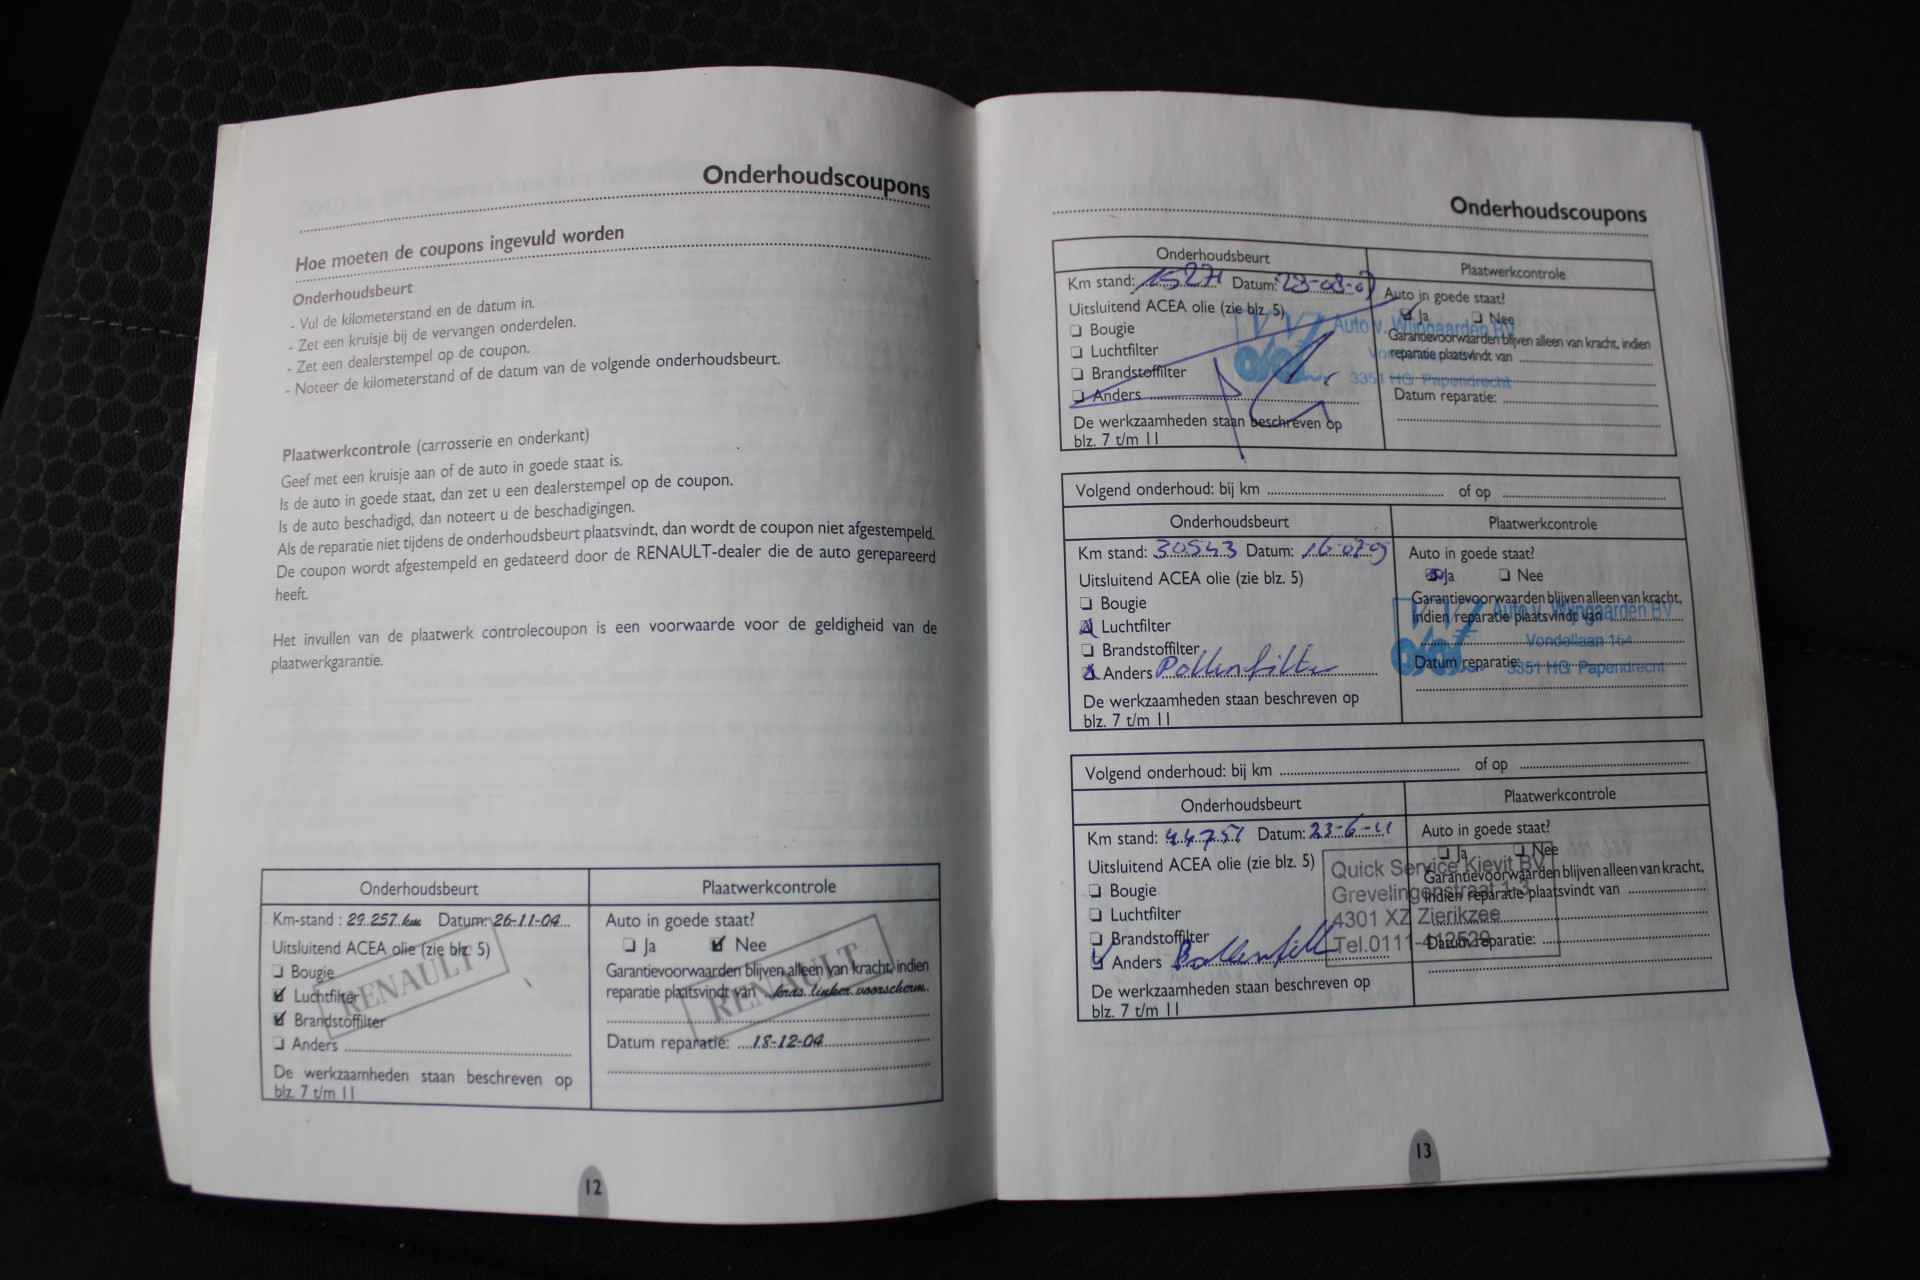 Onderhoudscoupons
Hoe moeten de coupons ingevuld worden
Onderhoudsbeurt
- Vul de kilometerstand en de datum in.
- Zet een kruisje bij de vervangen onderdelen.
- Zet een dealerstempel op de coupon.
- Noteer de kilometerstand of de datum van de volgende onderhoudsbeurt.
Plaatwerkcontrole (carrosserie en onderkant)
Geef met een kruisje aan of de auto in goede staat is.
Is de auto in goede staat, dan zet u een dealerstempel op de coupon.
Is de auto beschadigd, dan noteert u de beschadigingen.
Als de reparatie niet tijdens de onderhoudsbeurt plaatsvindt, dan wordt de coupon niet afgestempeld.
De coupon wordt afgestempeld en gedateerd door de RENAULT-dealer die de auto gerepareerd
heeft.
Het invullen van de plaatwerk controlecoupon is een voorwaarde voor de geldigheid van de
plaatwerkgarantie.
Onderhoudsbeurt
Km-stand : 29.257 km Datum: 26-11-04
Uitsluitend ACEA olie (zie blz. 5)
Bougie
Luchtfilter
Brandstoffilter
Anders
De werkzaamheden staan beschreven op
blz. 7 t/m 11
RENAULT
Plaatwerkcontrole
Auto in goede staat?
Ja Nee
Garantievoorwaarden blijven alleen van kracht, indien
reparatie plaatsvindt van kras linker voorscherm.
Datum reparatie: 18-12-04
RENAULT
12
Onderhoudscoupons
Onderhoudsbeurt
Km stand: 15271 Datum: 23-08-07
Uitsluitend ACEA olie (zie blz. 5)
Bougie
Luchtfilter
Brandstoffilter
Anders
De werkzaamheden staan beschreven op
blz. 7 t/m 11
Plaatwerkcontrole
Auto in goede staat?
Ja Nee
Garantievoorwaarden blijven alleen van kracht, indien
reparatie plaatsvindt van
Datum reparatie:
Auto v. Wijngaarden BV
3351 HG Papendrecht
Volgend onderhoud: bij km of op
Onderhoudsbeurt
Km stand: 30543 Datum: 16-07-9
Uitsluitend ACEA olie (zie blz. 5)
Bougie
Luchtfilter
Brandstoffilter
Anders Pollenfilter
De werkzaamheden staan beschreven op
blz. 7 t/m 11
Plaatwerkcontrole
Auto in goede staat?
Ja Nee
Garantievoorwaarden blijven alleen van kracht,
indien reparatie plaatsvindt van
Datum reparatie:
Auto v. Wijngaarden BV
Vondellaan 164
3351 HG Papendrecht
Volgend onderhoud: bij km of op
Onderhoudsbeurt
Km stand: 44751 Datum: 23-6-11
Uitsluitend ACEA olie (zie blz. 5)
Bougie
Luchtfilter
Brandstoffilter
Anders Pollenfilt
De werkzaamheden staan beschreven op
blz. 7 t/m 11
Plaatwerkcontrole
Auto in goede staat?
Ja Nee
Garantievoorwaarden blijven alleen van kracht,
indien reparatie plaatsvindt van
Datum reparatie:
Quick Service Kievit BV
Grevelingenstraat 1-3
4301 XZ Zierikzee
Tel.0111-412529
13